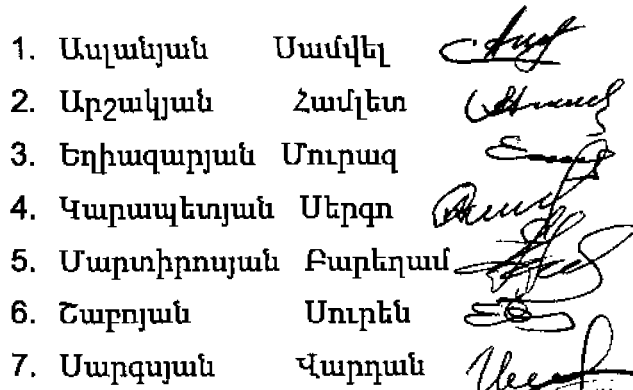 1. Ասլանյան Սամվել
2. Արշակյան Համլետ
3. Եղիազարյան Մուրազ
4. Կարապետյան Սերգո
5. Մարտիրոսյան Բարեղամ
6. Շաբոյան Սուրեն
7. Սարգսյան Վարդան